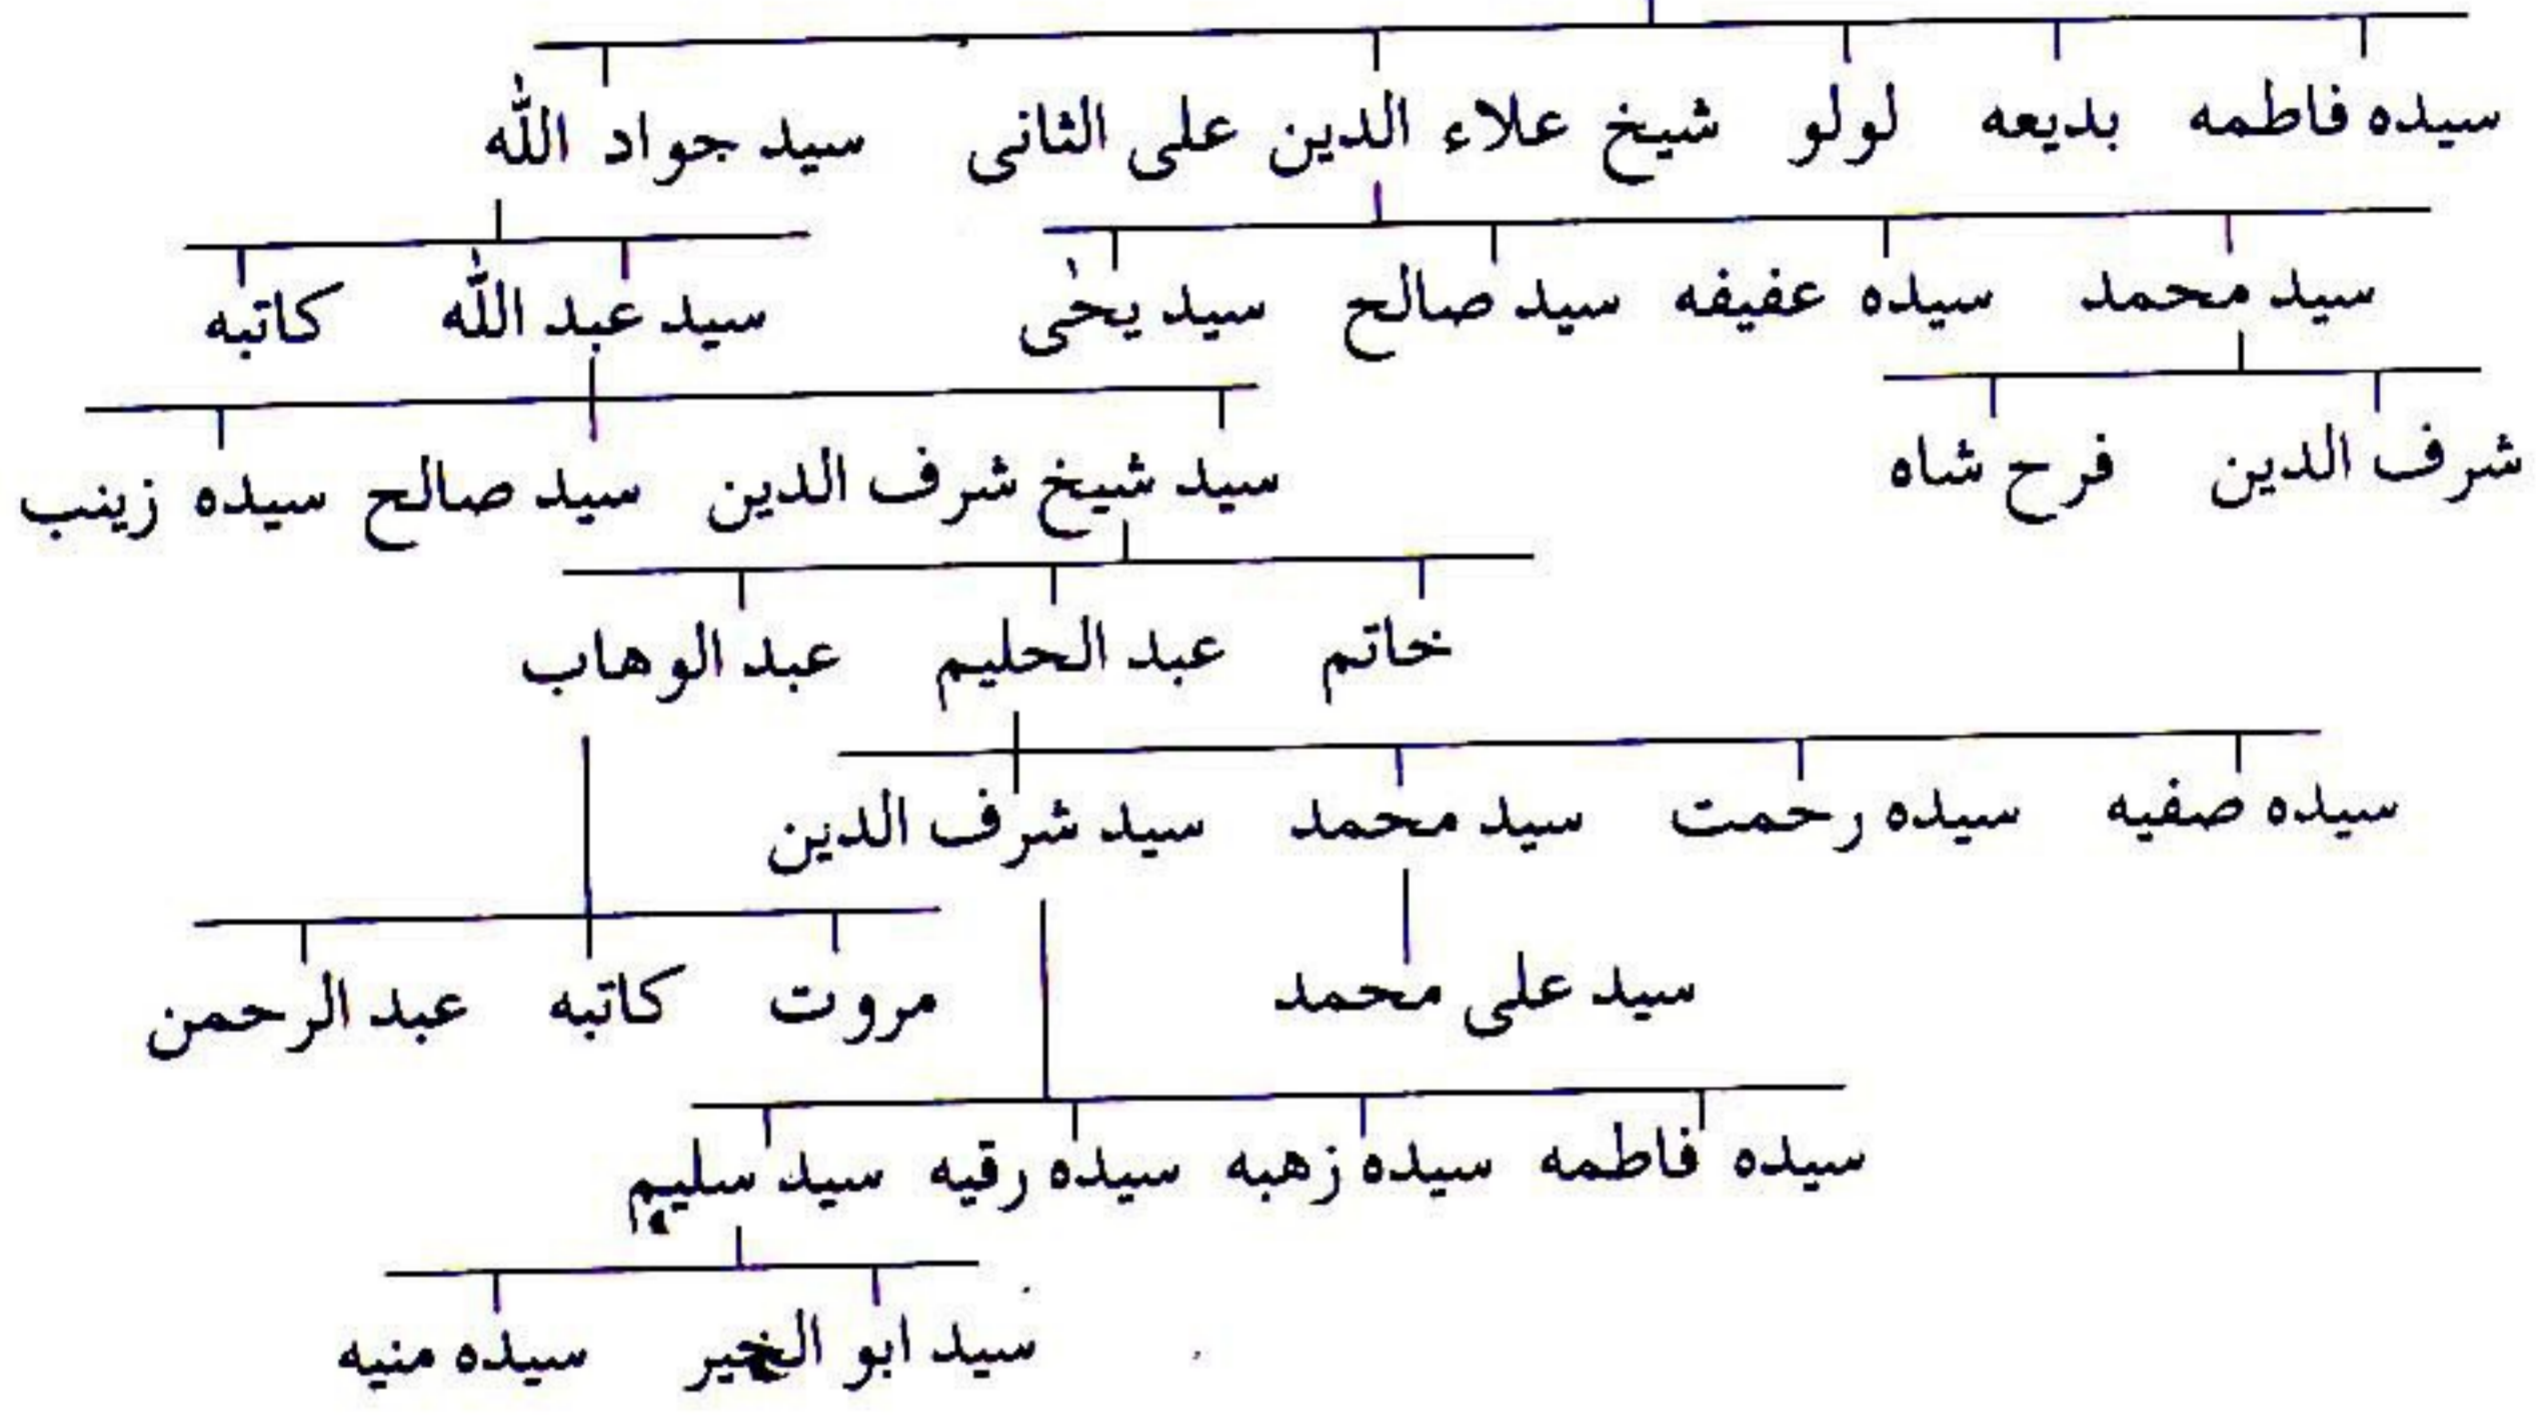 سیده فاطمه بدیعه لولو شیخ علاء الدین علی الثانی سید جواد الله
سید محمد سیده عفیفه سید صالح سید یحٰی سید عبد الله کاتبه
شرف الدین فرح شاه سید شیخ شرف الدین سید صالح سیده زینب
خاتم عبد الحلیم عبد الوهاب
سیده صفیه سیده رحمت سید محمد سید شرف الدین
سید علی محمد مروت کاتبه عبد الرحمن
سیده فاطمه سیده زهبه سیده رقیه سید سلیم
سید ابو الخیر سیده منیه